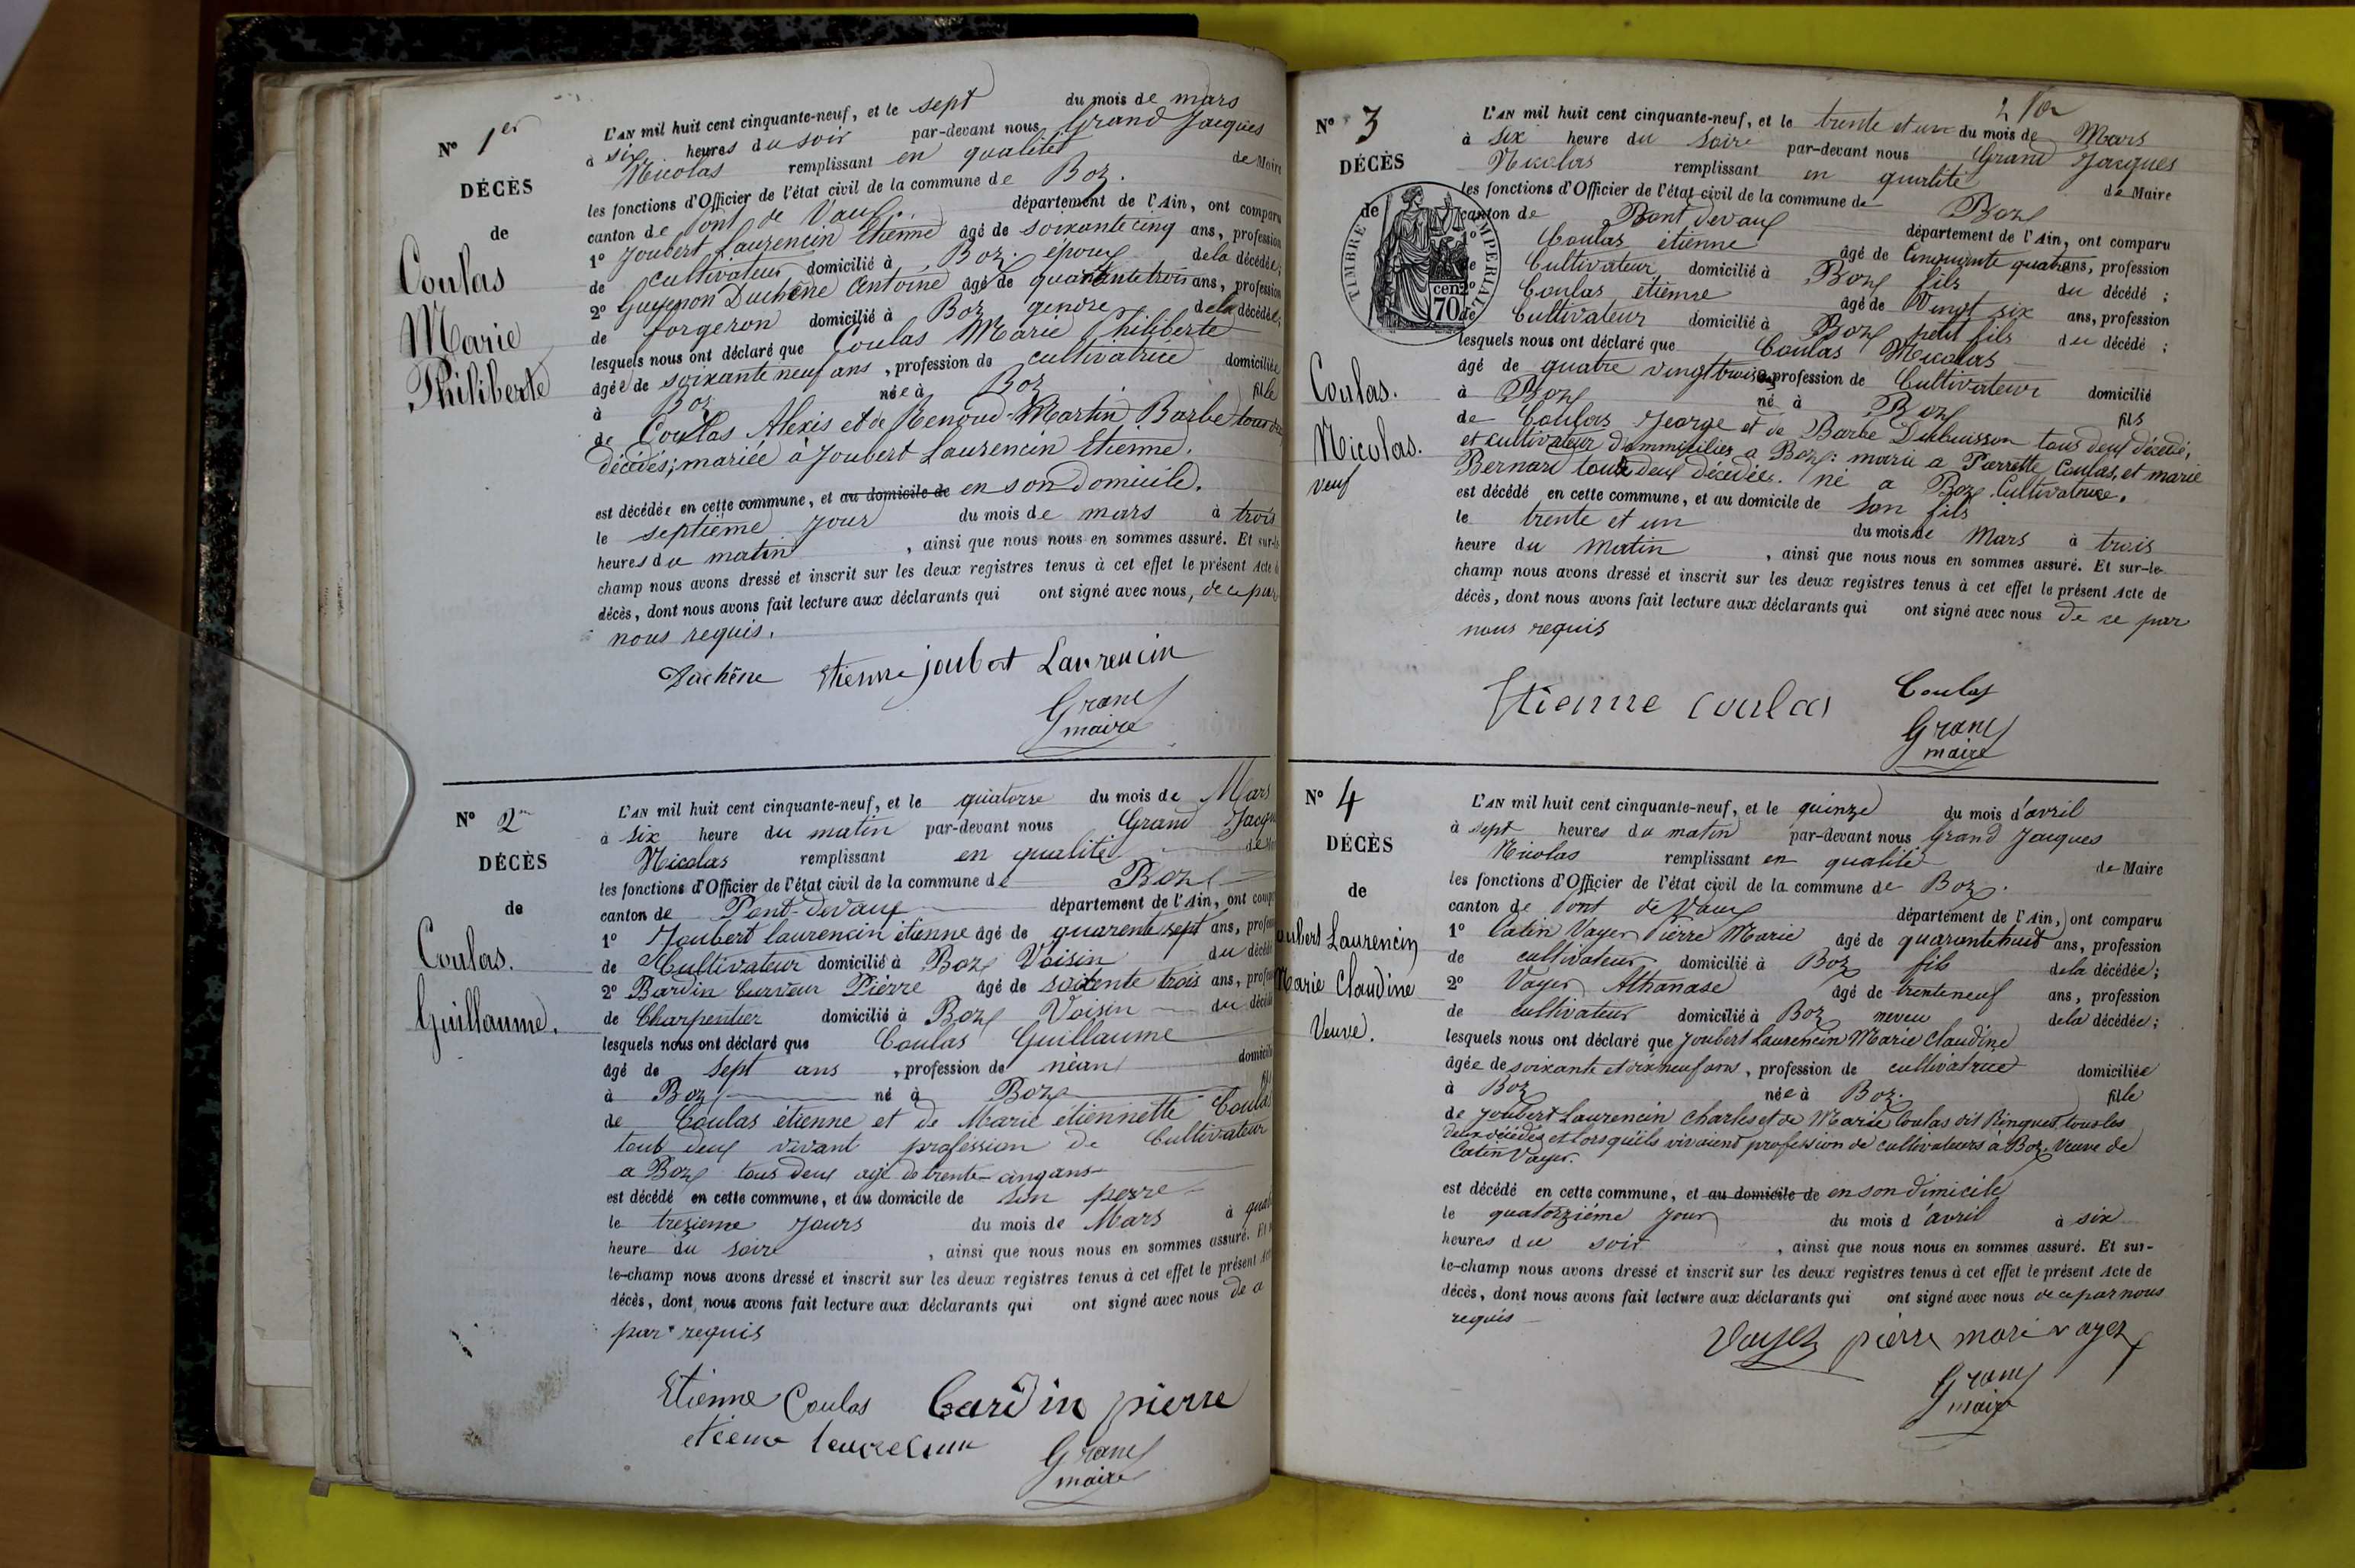 N° 1er
DÉCÈS
de
Coulas
Marie
Philiberte
L'AN mil huit cent cinquante-neuf, et le sept du mois de mars
à six heures du soir par-devant nous Grand Jacques
Nicolas remplissant en qualité de Maire
les fonctions d'Officier de l'état civil de la commune de Boz.
canton de Pont de Vaux. département de l'Ain, ont comparu
1° Joubert Laurencin Etienne âgé de soixante cinq ans, profession
de cultivateur domicilié à Boz. époux de la décédée;
2° Guyenon Duchêne Antoine âgé de quarante trois ans, profession
de forgeron domicilié à Boz gendre de la décédée;
lesquels nous ont déclaré que Coulas Marie Philiberte
âgée de soixante neuf ans, profession de cultivatrice domiciliée
à Boz née à Boz fille
de Coulas Alexis et de Renoud-Martin Barbe tous
décédés; mariée à Joubert Laurencin Etienne.
est décédée en cette commune, et au domicile de en son domicile.
le septième jour du mois de mars à trois
heures du matin, ainsi que nous nous en sommes assuré. Et sur-le
champ nous avons dressé et inscrit sur les deux registres tenus à cet effet le présent Acte
décès, dont nous avons fait lecture aux déclarants qui ont signé avec nous, de ce par
nous requis.
Duchêne Etienne joubert Laurencin
Grand
maire
N° 2m
DÉCÈS
de
Coulas.
Guillaume.
L'AN mil huit cent cinquante-neuf, et le quatorze du mois de Mars
à six heure du matin par-devant nous Grand Jacqu
Nicolas remplissant en qualité de
les fonctions d'Officier de l'état civil de la commune de Boz
canton de Pont-devaux département de l'Ain, ont comp
1° Joubert laurencin étienne âgé de quarente sept ans, profes
de Cultivateur domicilié à Boz Voisin du décédé
2° Bardin Curveur Pierre âgé de soixente trois ans, profes
de Charpentier domicilié à Boz Voisin du décédé
lesquels nous ont déclaré que Coulas Guillaume
âgé de sept ans, profession de néan domicilié
à Boz né à Boz
de Coulas étienne et de Marie étiennette Coula
tout deux vivant profession de Cultivateur
a Boz tous deux agé de trente-cinq ans
est décédé en cette commune, et au domicile de son perre
le trezieme jours du mois de Mars à quat
heure du soire, ainsi que nous nous en sommes assuré. Et
le-champ nous avons dressé et inscrit sur les deux registres tenus à cet effet le présent
décès, dont nous avons fait lecture aux déclarants qui ont signé avec nous de
par requis
Etienne Coulas Bardin pierre
Grand
maire
N° 3
DÉCÈS
de
TIMBRE IMPERIAL
70 cen
Coulas.
Nicolas.
veuf
L'AN mil huit cent cinquante-neuf, et le trente et un du mois de Mars
à six heure du soire par-devant nous Grand Jacques
Nicolas remplissant en qualité de Maire
les fonctions d'Officier de l'état civil de la commune de Boz
canton de Pont devaux département de l'Ain, ont comparu
1° Coulas étienne âgé de Cinquante quatre ans, profession
de Cultivateur domicilié à Boz fils du décédé;
2° Coulas etienne âgé de Vingt six ans, profession
de Cultivateur domicilié à Boz petit fils du décédé;
lesquels nous ont déclaré que Coulas Nicolas
âgé de quatre vingt trois ans profession de Cultivateur domicilié
à Boz né à Boz fils
de Coulas Jeorge et de Barbe Dubuisson tous deux décédé,
et cultivateur dommicilier a Boz: marié a Pierrette Coulas, et marie
Bernard toute deux décédées. né a Boz Cultivatrice.
est décédé en cette commune, et au domicile de son fils
le trente et un du mois de Mars à trois
heure du Matin, ainsi que nous nous en sommes assuré. Et sur-le-
champ nous avons dressé et inscrit sur les deux registres tenus à cet effet le présent Acte de
décès, dont nous avons fait lecture aux déclarants qui ont signé avec nous de ce par
nous requis
Etienne Coulas Coulas
Grand
maire
N° 4
DÉCÈS
de
oubert Laurencin
Marie Claudine
Veuve.
L'AN mil huit cent cinquante-neuf, et le quinze du mois d'avril
à sept heures du matin par-devant nous Grand Jacques
Nicolas remplissant en qualité de Maire
les fonctions d'Officier de l'état civil de la commune de Boz.
canton de Pont de Vaux département de l'Ain, ont comparu
1° Catin Voyer Pierre Marie âgé de quarante huit ans, profession
de cultivateur domicilié à Boz fils de la décédée;
2° Voyer Athanase âgé de trente neuf ans, profession
de cultivateur domicilié à Boz neveu de la décédée;
lesquels nous ont déclaré que Joubert Laurencin Marie Claudine
âgée de soixante et dix neuf ans, profession de cultivatrice domiciliée
à Boz née à Boz. fille
de Joubert Laurencin Charles et de Marie Coulas dit Ringuet, tous les
deux décédés et lorsqu'ils vivaient profession de cultivateurs à Boz. Veuve de
Catin Voyer.
est décédé en cette commune, et au domicile de en son dimicile
le quatorzième jour du mois d'avril à six
heures du soir, ainsi que nous nous en sommes assuré. Et sur-
le-champ nous avons dressé et inscrit sur les deux registres tenus à cet effet le présent Acte de
décès, dont nous avons fait lecture aux déclarants qui ont signé avec nous de ce par nous
requis
Voyer pierre mari voyer
Grand
maire